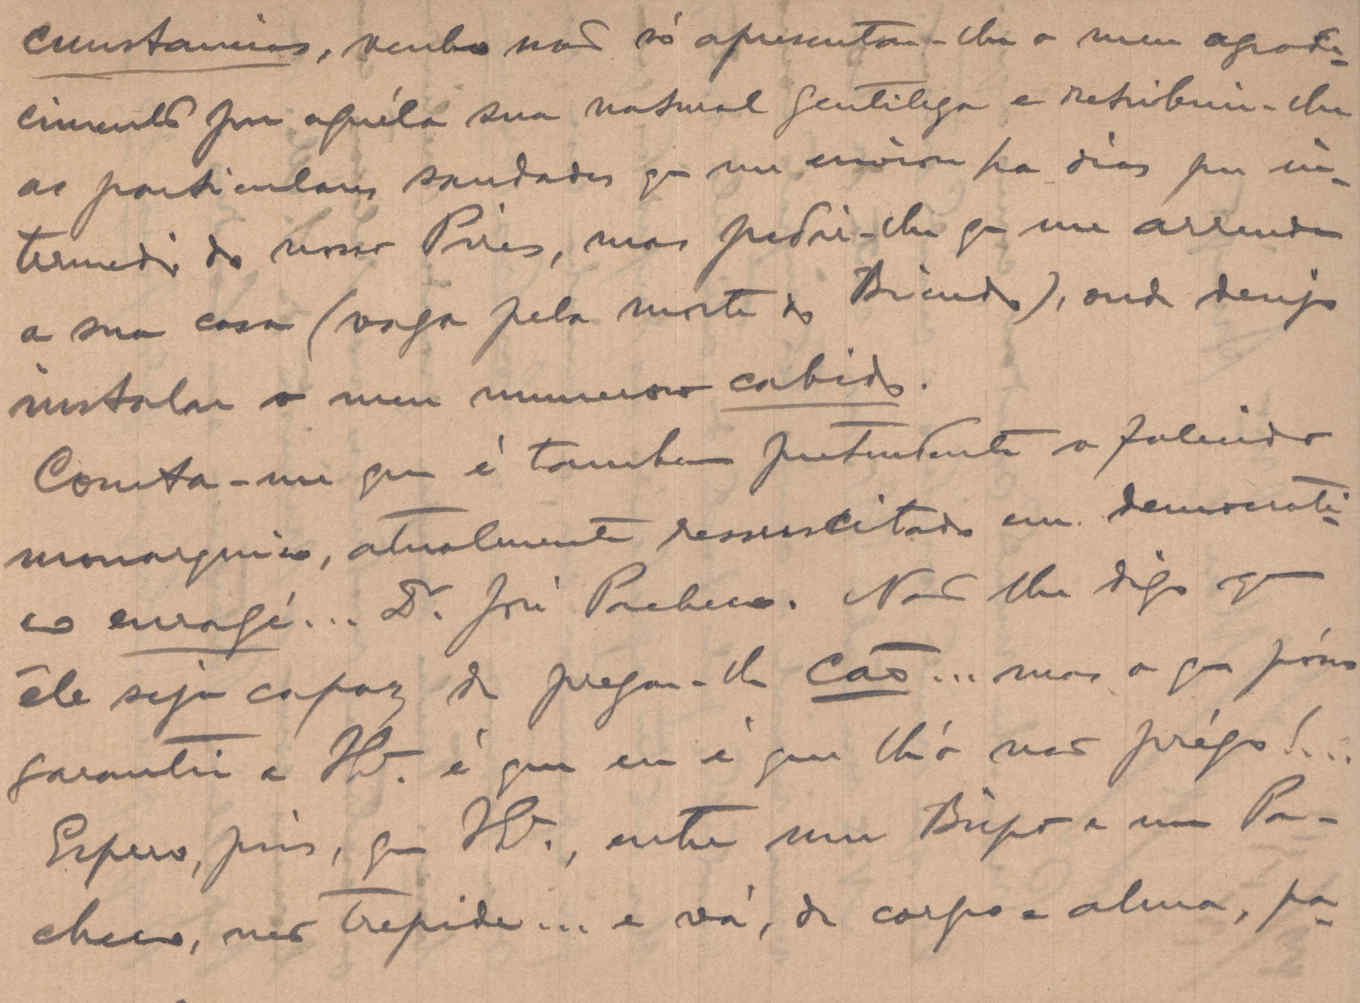 cunstancias, venho não só apresentar-lhe o meu agrade-
cimento por aquéla sua natural gentileza e retribuir-lhe
as particulares saudades q me enviou ha dias por in-
termedio do nosso Pires, mas pedir-lhe q me arrende
a sua casa (vaga pela morte do Bicudo), onde desejo
instalar o meu numeroso cabido.
Consta-me que é tambem pretendente o falecido
monarquico, atualmente ressuscitado em democrati-
co enragé... Dr. José Pacheco. Não lhe digo q
êle seja capaz de pregar-lh cão... mas o que pósso
garantir a é que eu é que lh'o não prégo!...
Espero, pois, q , entre um Bispo e um Pa-
checo, não trepide... e vá, de corpo e alma, pa-